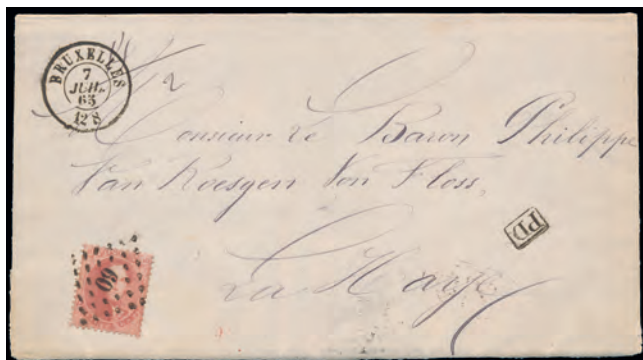 BRUXELLES
7
JUIL.
63
12S
Monsieur le Baron Philippe
Van Roesgen Von Floss,
PD
60
La Haye